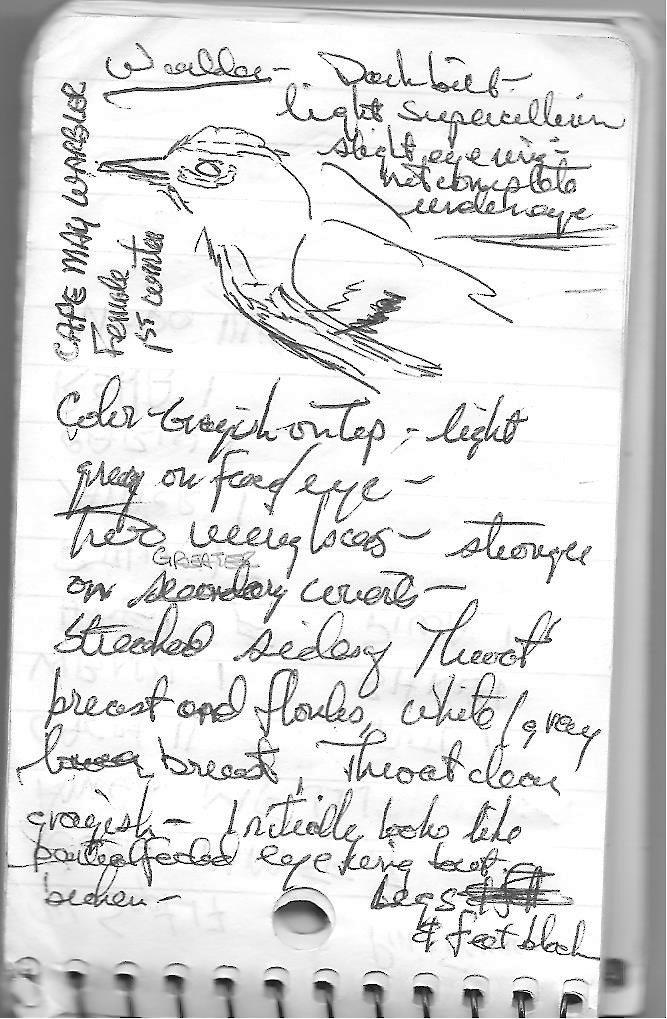 Warbler - Dark bill -
light Supercilium
slight eye ring -
not complete
under eye
CAPE MAY WARBLER
Female
1st winter
Color - Grayish on top - light
gray on fore/eye -
Two wing bars - stronger
GREATER
on secondary coverts -
Streaked sides, Throat
breast and flanks, white/gray
lower breast, Throat clear
grayish - Initially looks like
partial faded eye ring but
broken -
Legs
& feet black